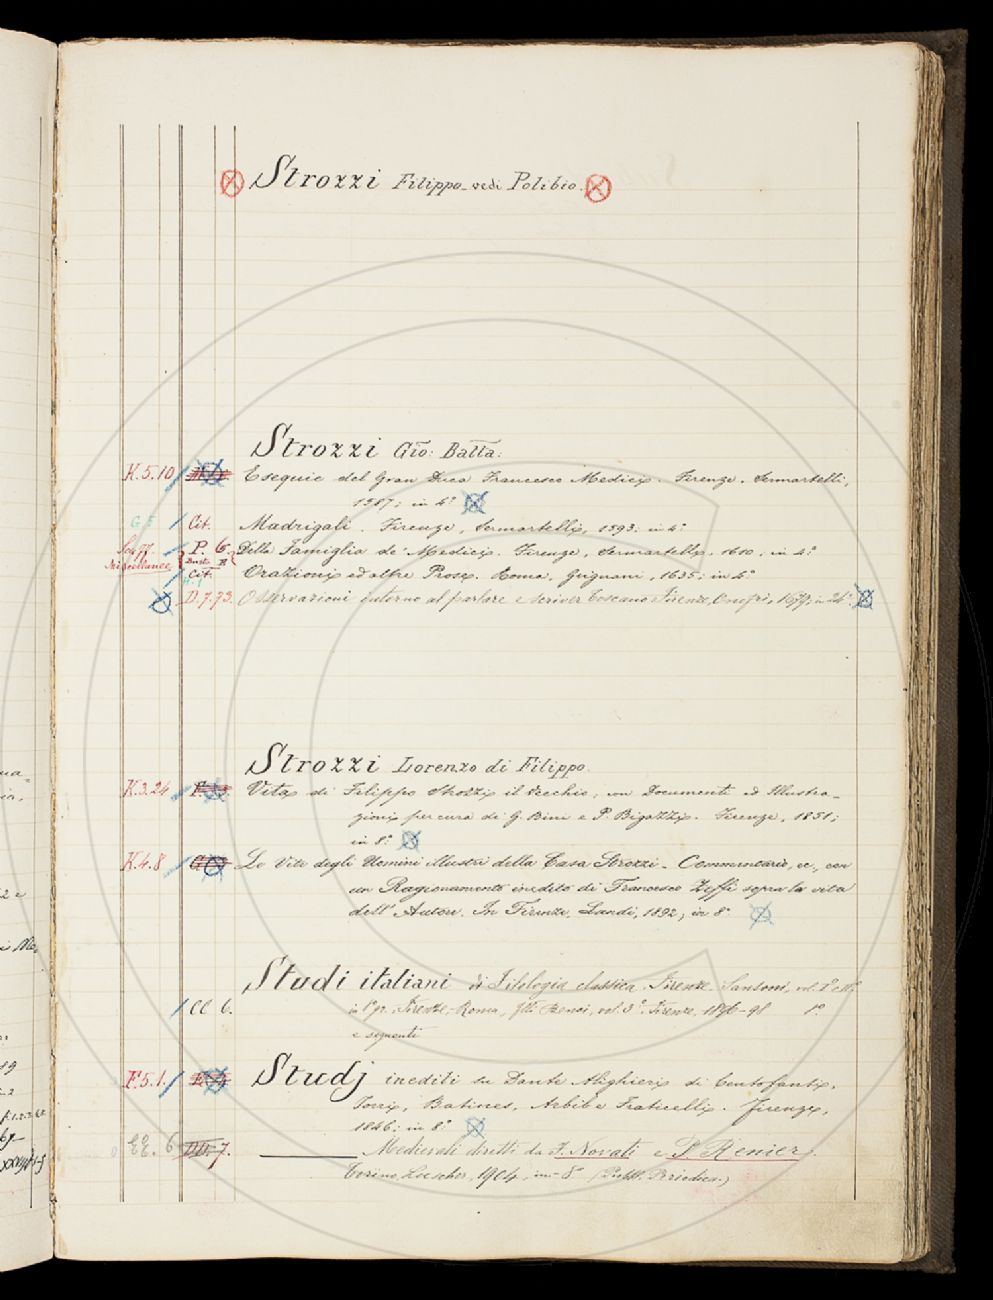 Strozzi Filippo - vedi Polibio.
Strozzi Gio: Batta:
K.5.10 Esequie del Gran Duca Francesco Medici. Firenze, Sermartelli,
1587; in 4°
Cit. Madrigali. Firenze, Sermartelli, 1593. in 4°
P. 6 Della Famiglia de' Medici. Firenze, Sermartelli, 1610; in 4°
Miscellanea
Cit. Orazioni ed altre Prose. Roma, Grignani, 1635; in 4°
D.7.73. Osservazioni intorno al parlare e scriver Toscano. Firenze, 1679, in 24°.
Strozzi Lorenzo di Filippo.
K.3.24 Vita di Filippo Strozzi il Vecchio, con Documenti ed Illustra-
zioni per cura di G. Bini e P. Bigazzi. Firenze, 1851;
in 8°
K.4.8 Le Vite degli Uomini illustri della Casa Strozzi - Commentario, ec, con
un Ragionamento inedito di Francesco Zeffi sopra la vita
dell' Autore. In Firenze, Landi, 1892; in 8°
Studi italiani di Filologia classica. Firenze Sansoni, vol. 1° e 2°
6. Firenze-Roma, Flli Bencini, vol. 3° Firenze, 1896-98
e seguenti
F.5.1. Studj inediti su Dante Alighieri di Centofanti,
Torri, Batines, Arbib e Fraticelli. Firenze,
1846; in 8°
EE. 6 7. Medievali diretti da F. Novati e R. Renier.
Torino, Loescher, 1904, in-8°